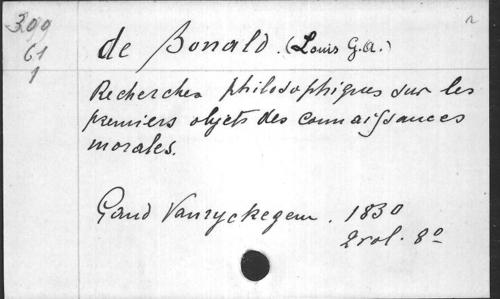 300
61
1
de Bonald. (Louis G.A.)
Recherches philosophiques sur les
premiers objets des connaissances
morales.
Gand Vanryckegem. 1830
2 vol. 8º